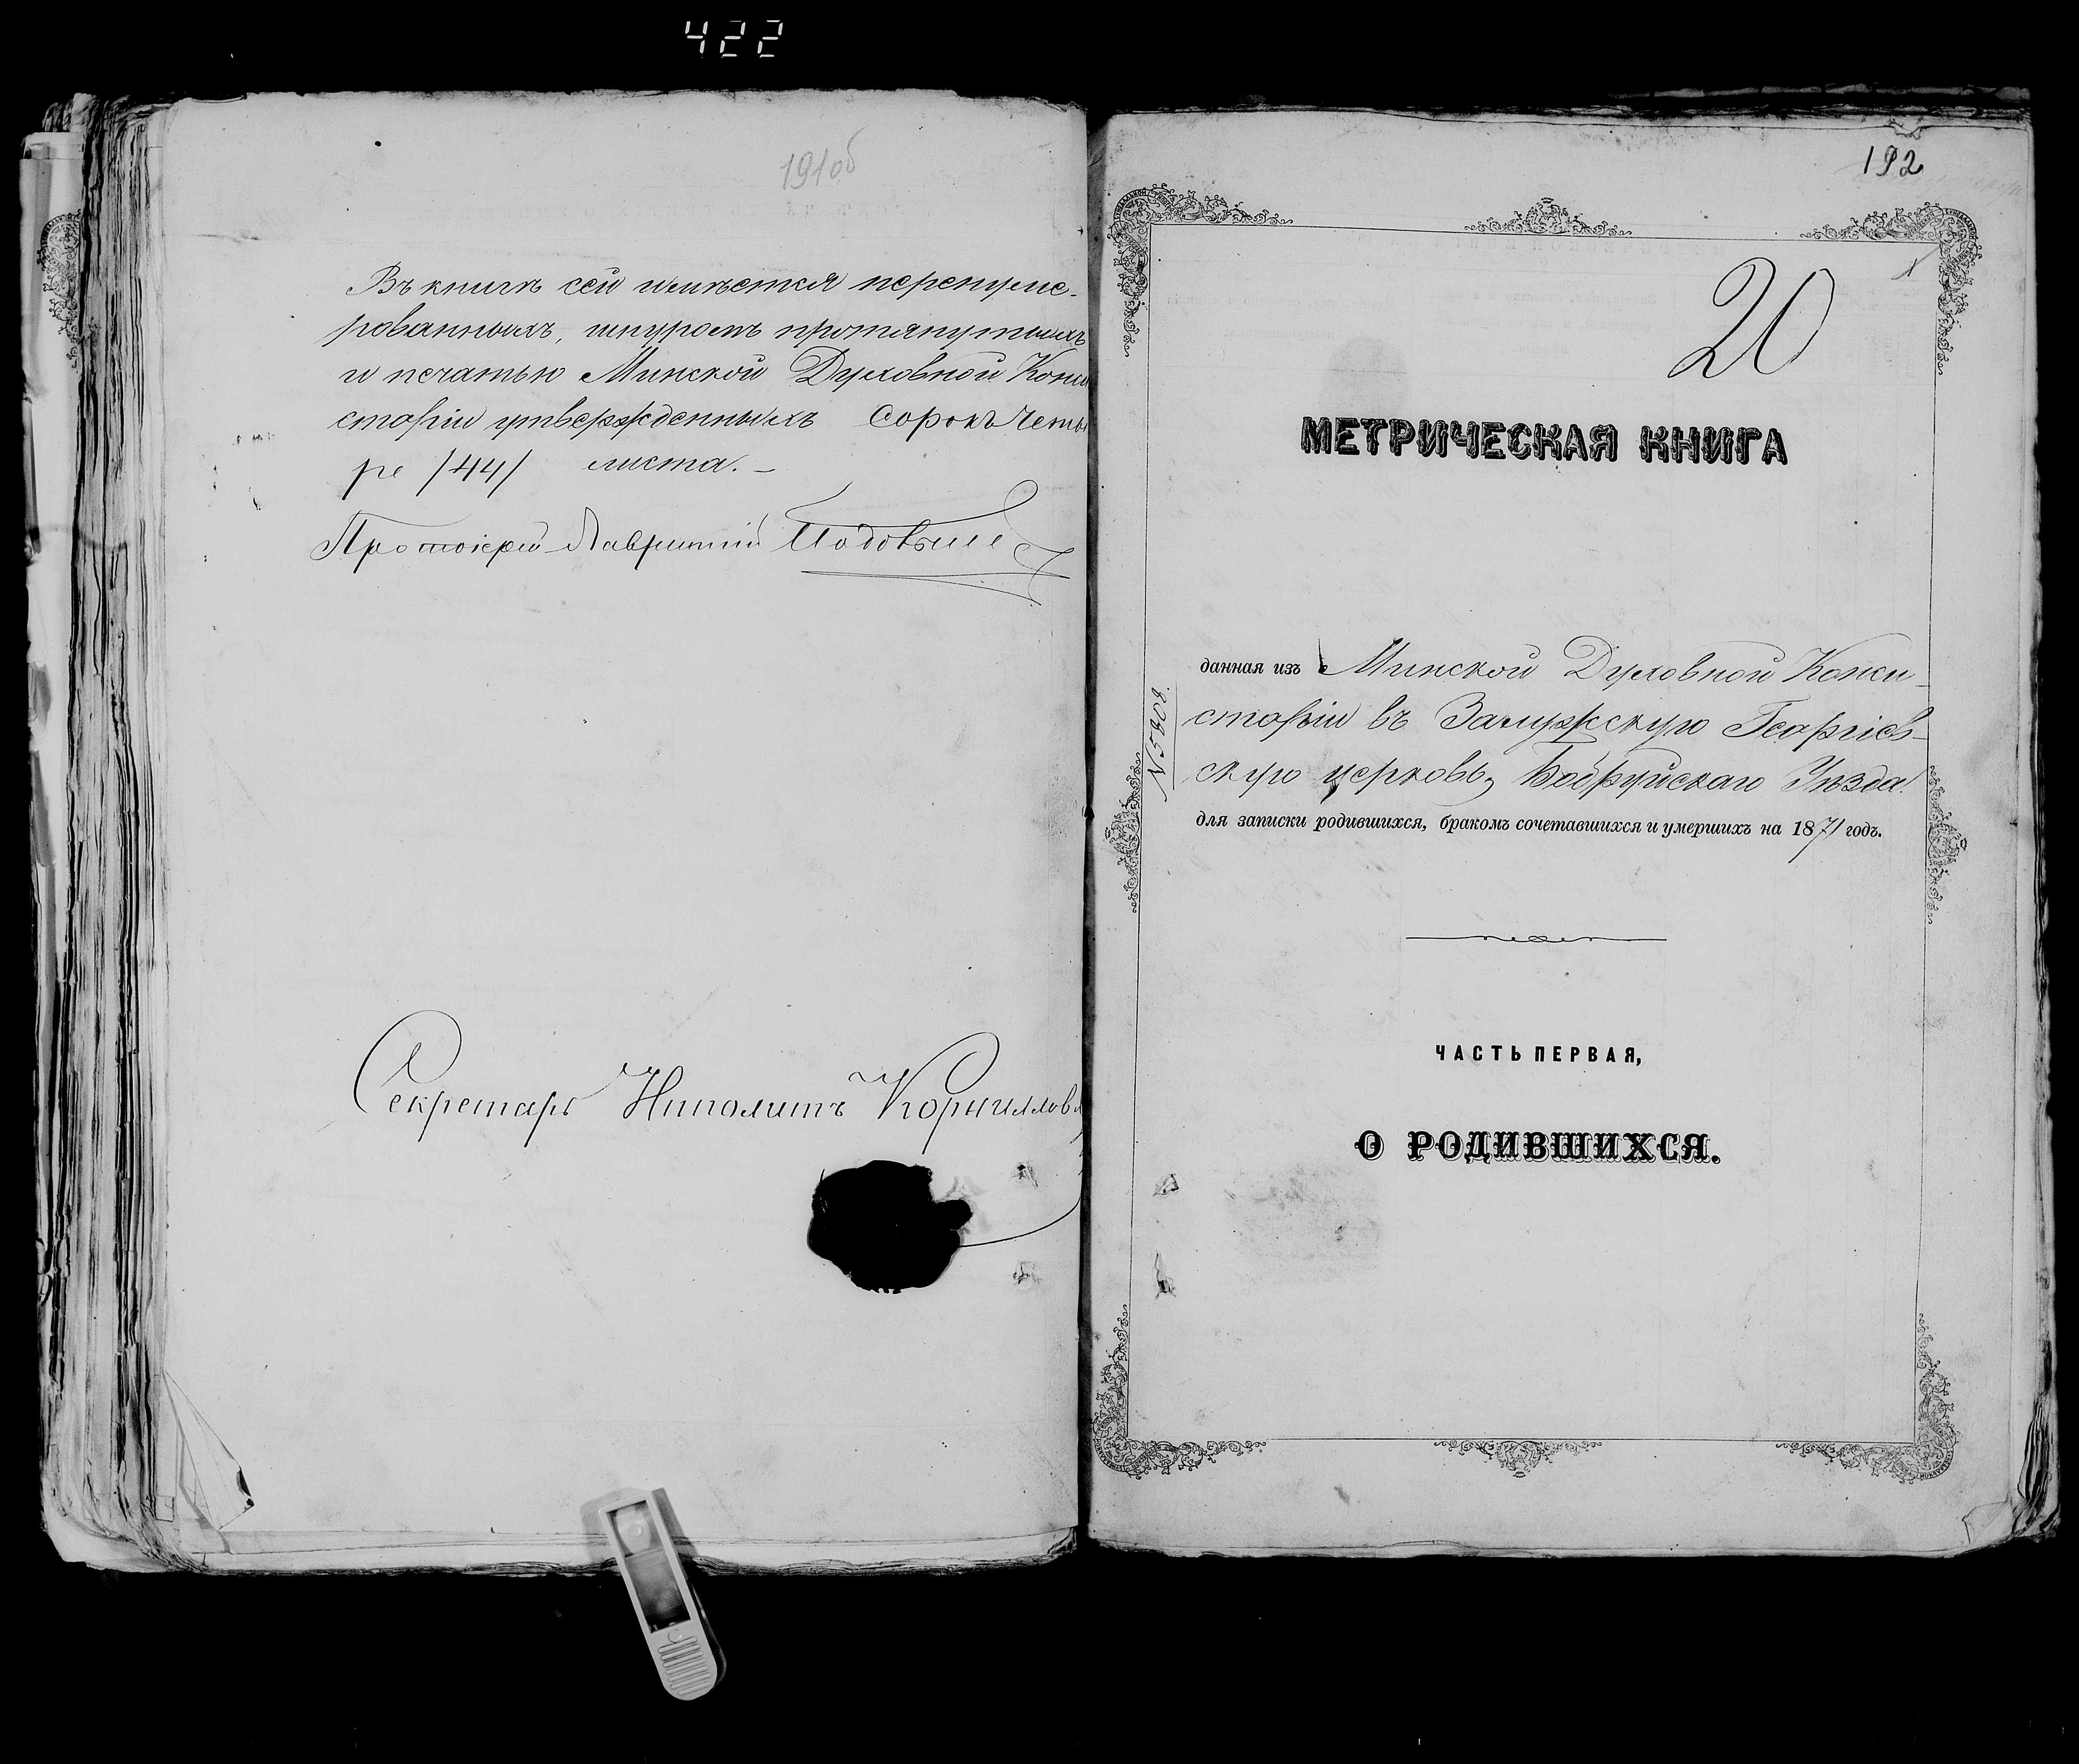 422
191об
Въ книгѣ сей имѣется перенуме-
рованныхъ, шнуромъ протянутыхъ
и печатью Минской Духовной Конси
сторіи утвержденныхъ сорокъ четы
ре /44/ листа.
Протоіерей
Секретарь Ипполитъ Корнилов
192
1
20
МЕТРИЧЕСКАЯ КНИГА
данная изъ Минской Духовной Конси-
сторіи въ Замужскую Георгіев-
скую церковь, Бобруйскаго Уѣзда
для записки родившихся, бракомъ сочетавшихся и умершихъ на 1871 годъ.
ЧАСТЬ ПЕРВАЯ,
О РОДИВШИХСЯ.